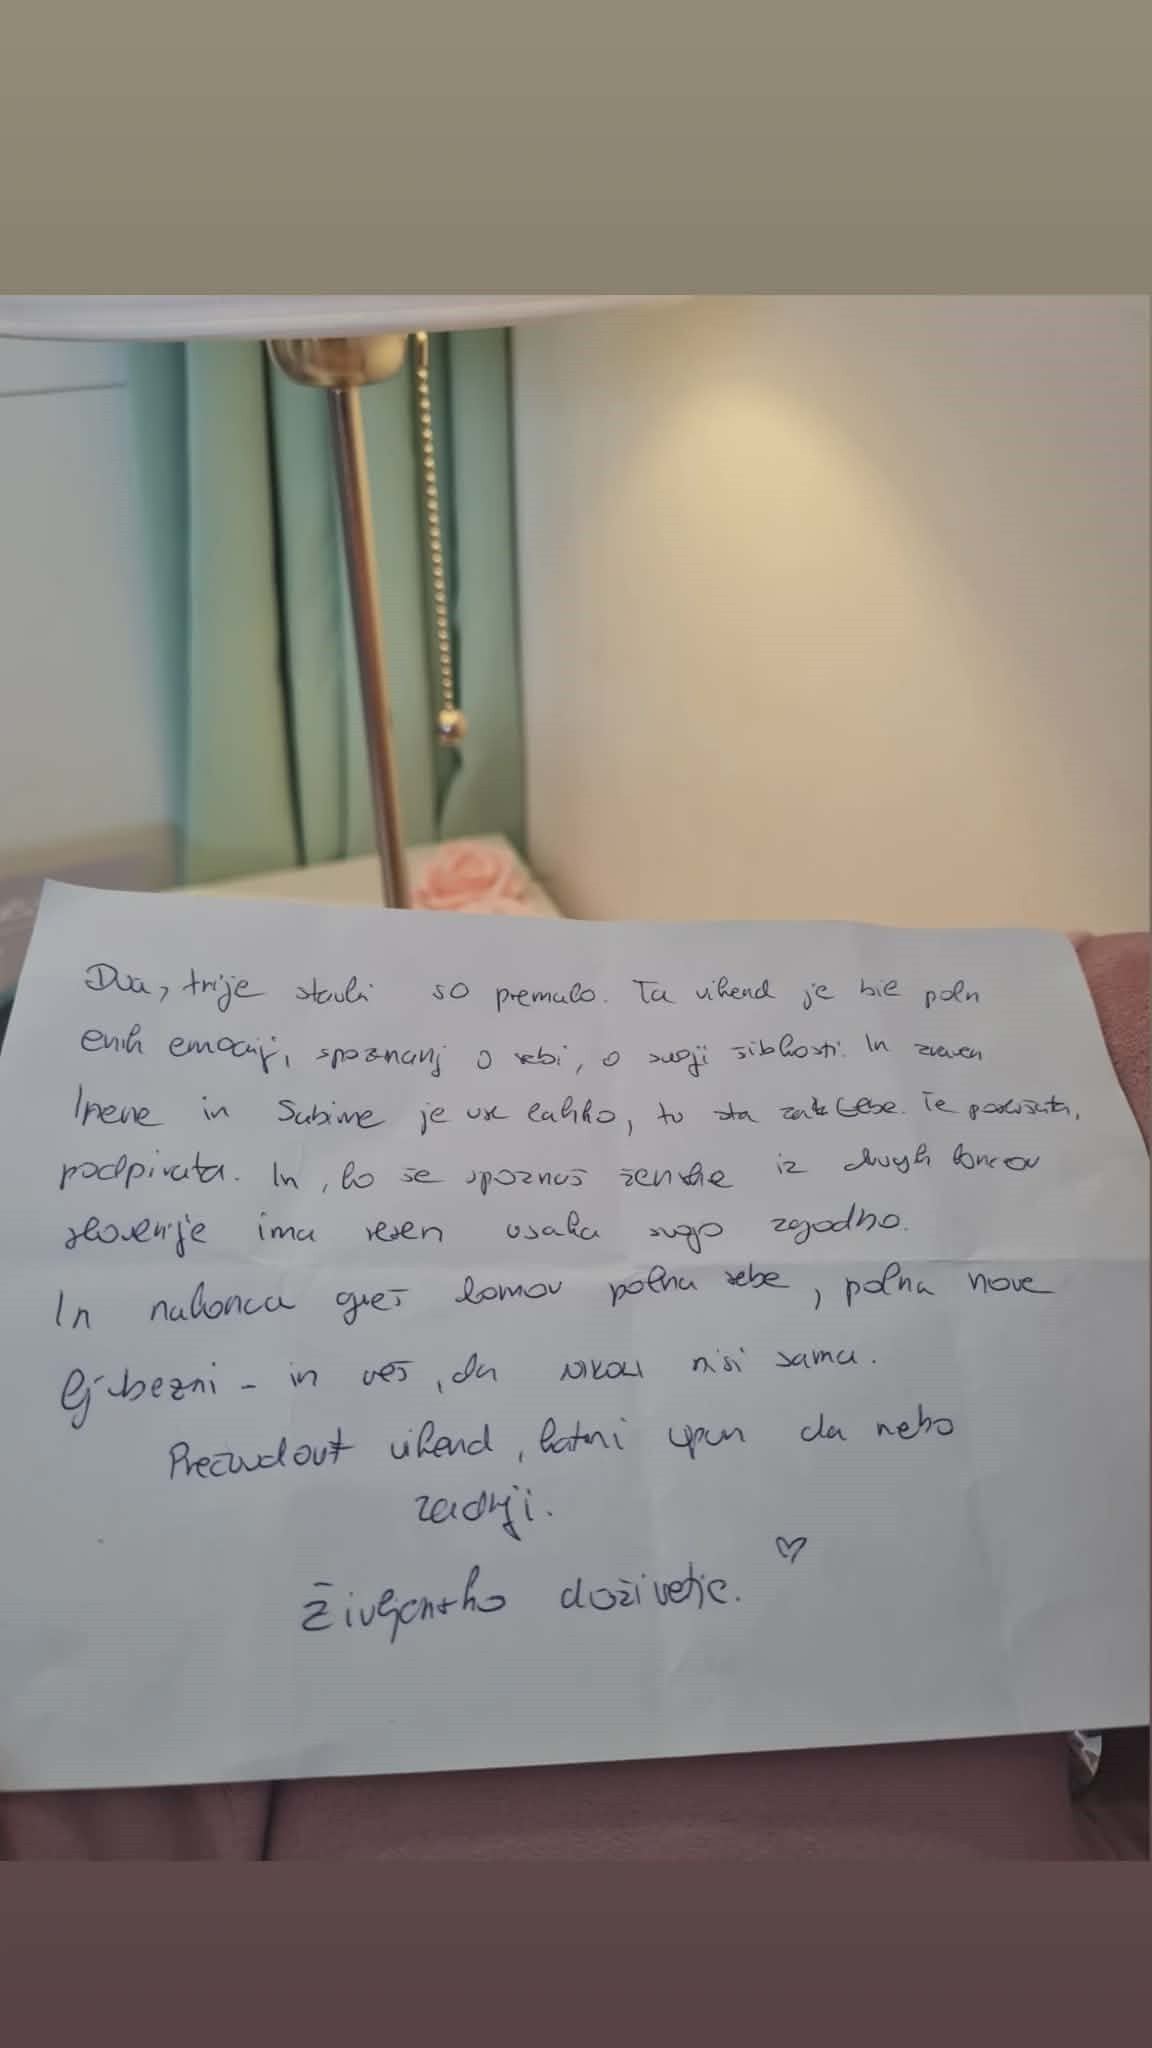 Dva, trije stavki so premalo. Ta vikend je bil poln
enih emocij, spoznanj o sebi, o svoji šibkosti. In zraven
Irene in Sabine je vse lahko, tu sta zate. Te poslušata,
podpirata. In, ko še spoznaš ženske iz drugih koncov
slovenije ima vsaka svojo zgodbo.
In nakonca greš domov polna sebe, polna nove
ljubezni - in veš, da NIKOLI nisi sama.
Prečudovit vikend, kateri upam da nebo
zadnji.
Življensko doživetje. ♡